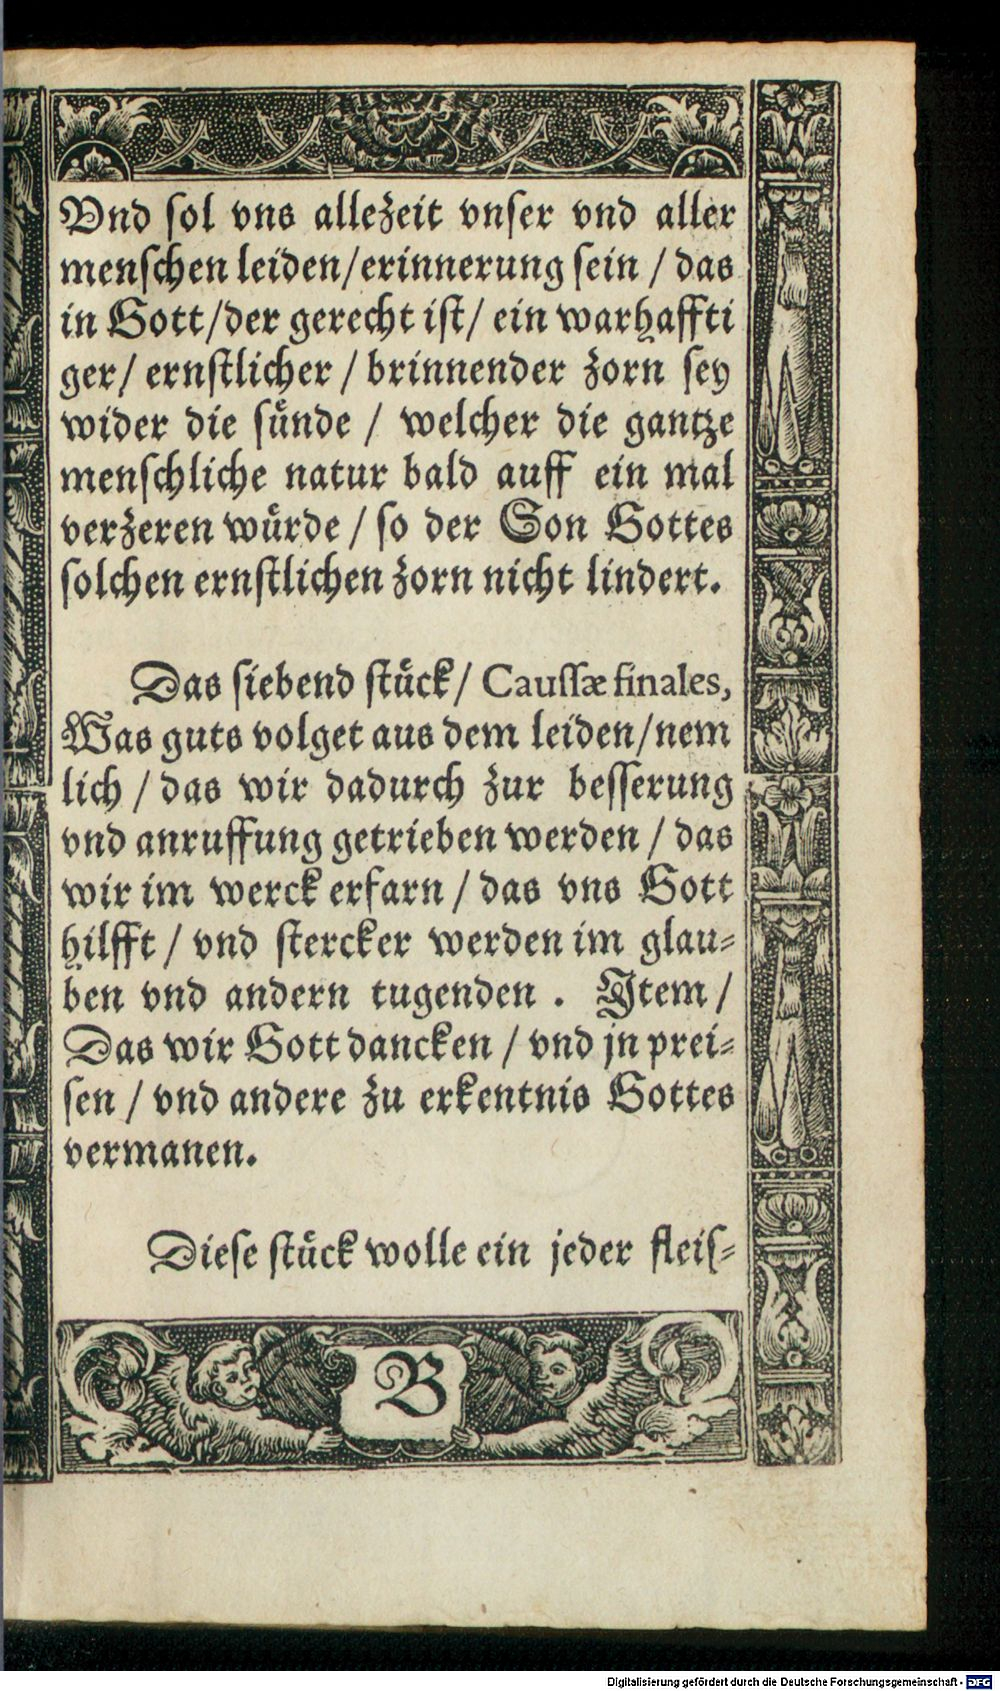 Vnd sol vns allezeit vnser vnd aller
menschen leiden/erinnerung sein / das
in Gott/der gerecht ist/ ein warhaffti
ger/ ernstlicher / brinnender zorn sey
wider die sünde / welcher die gantze
menschliche natur bald auff ein mal
verzeren würde / so der Son Gottes
solchen ernstlichen zorn nicht lindert.
Das siebend stück/ Caussæ finales,
Was guts volget aus dem leiden/nem
lich / das wir dadurch zur besserung
vnd anruffung getrieben werden / das
wir im werck erfarn / das vns Gott
hilfft / vnd stercker werden im glau-
ben vnd andern tugenden . Item /
Das wir Gott dancken / vnd jn prei-
sen / vnd andere zu erkentnis Gottes
vermanen.
Diese stück wolle ein jeder fleis-
B
Digitalisierung gefördert durch die Deutsche Forschungsgemeinschaft - DFG